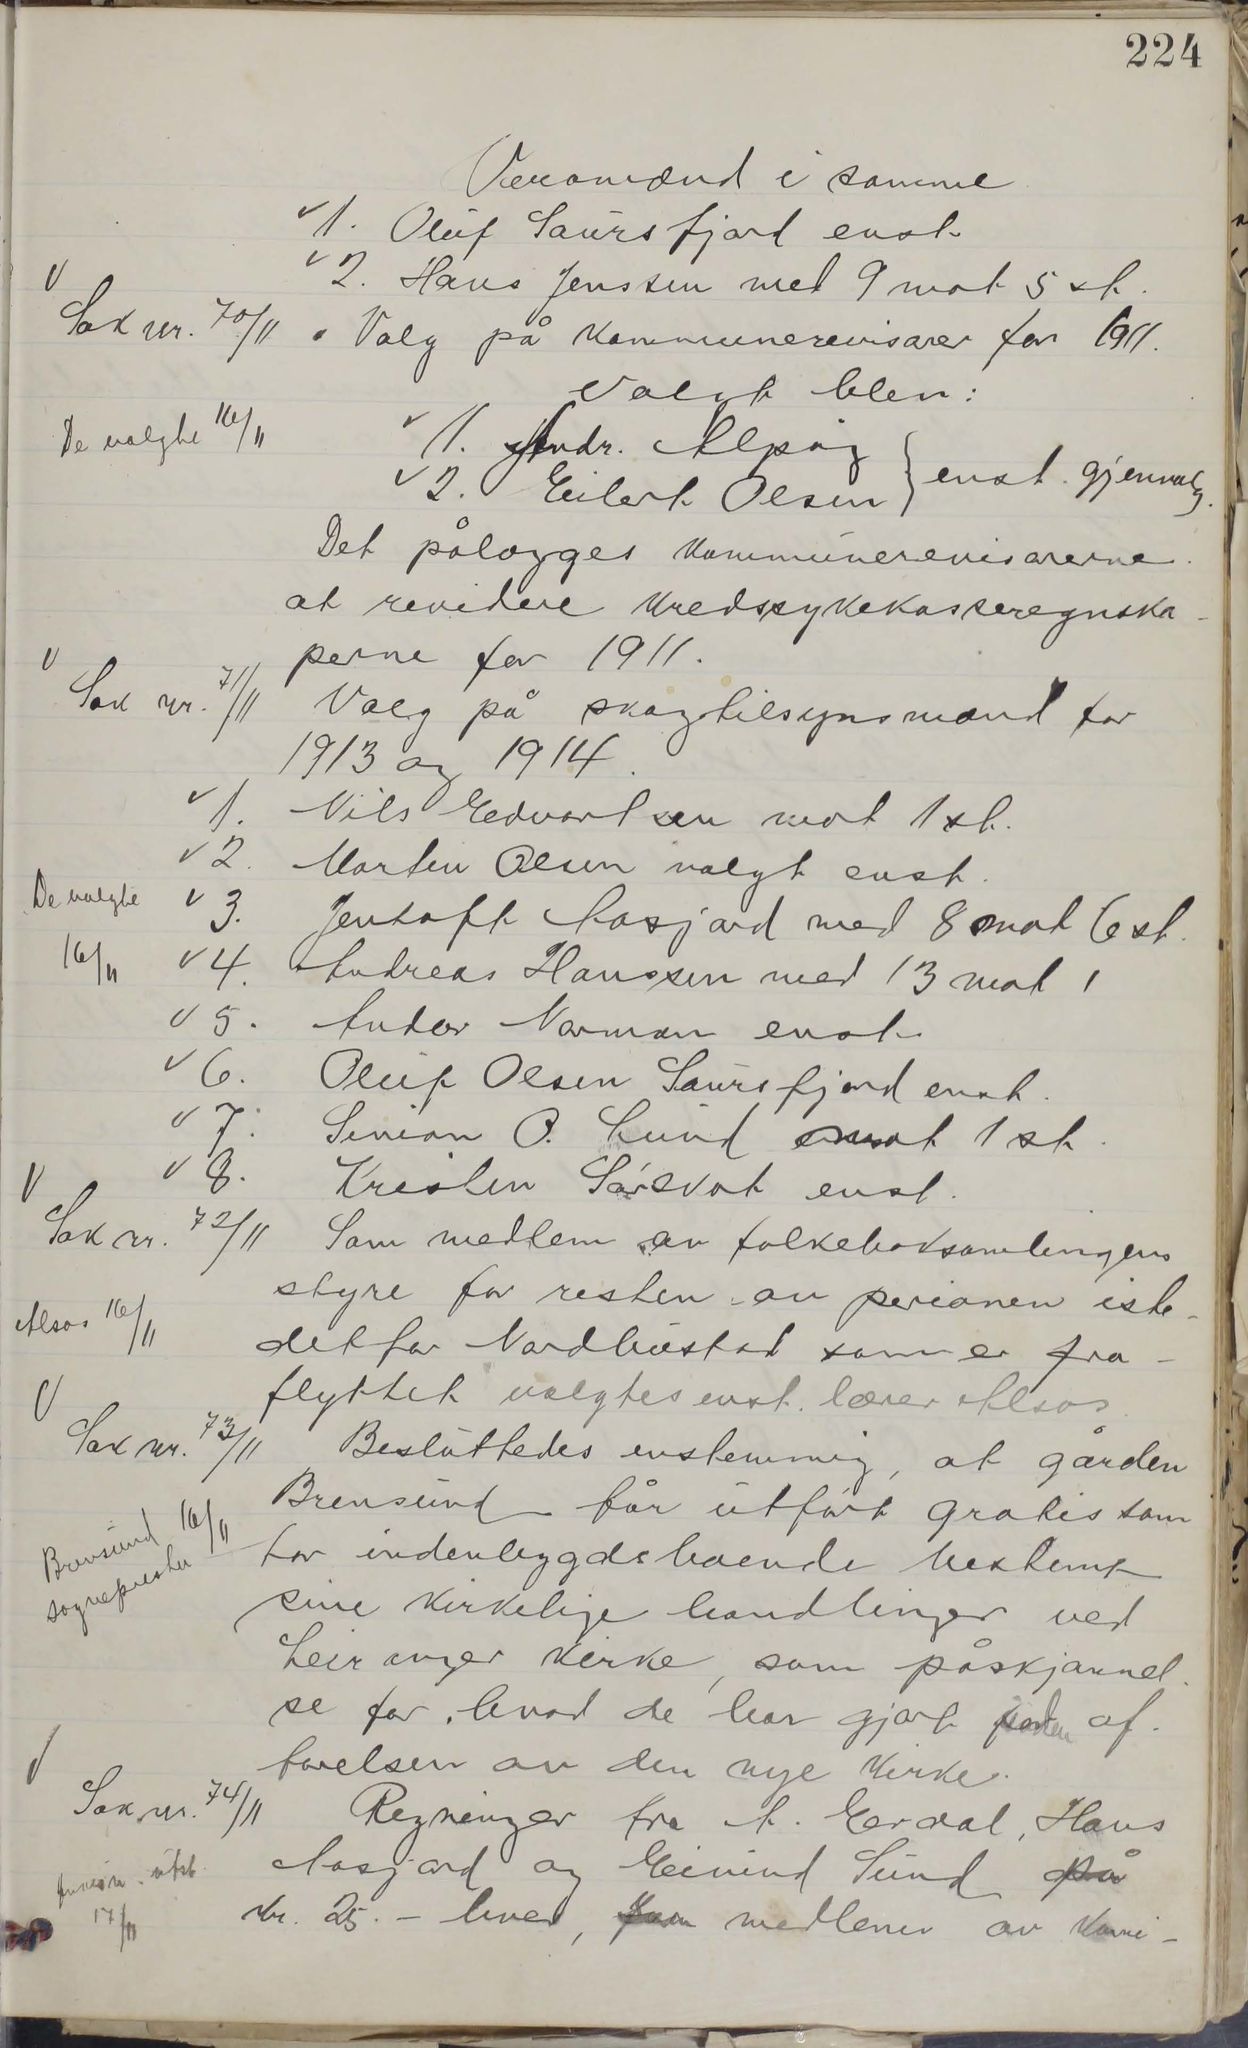 224
Varamænd i samme
√1. Oluf Saursfjord enst.
√2. Hans Jenssen med 9 mot 5 st.
√
Sak nr. 70/11 Valg på kommunerevisorer for 1911.
Valgt blev:
De valgte 16/11 √1. Andr. Alpøy
√2. Eilert Olsen } enst. gjenvalg.
Det pålægges kommunerevisorerne
at revidere kredssykekasseregnska-
perne for 1911.
√
Sak nr. 71/11 Valg på skogtilsynsmænd for
1913 og 1914.
√1. Nils Edvartsen mot 1 st.
√2. Martin Olsen valgt enst.
De valgte √3. Jentoft Aasjord med 8 mot 6 st.
16/11 √4. Andreas Hanssen med 13 mot 1
√5. Andor Norman enst.
√6. Oluf Olsen Saursfjord enst.
√7. Simion O. Lund mot 1 st.
√8. Kristen Sørskot enst.
√
Sak nr. 72/11 Som medlem av folkeboksamlingens
styre for resten av perioden iste-
Alsos 16/11
detfor Nordbustad som er fra-
flyttet valgtes enst. lærer Alsos.
√
Sak nr. 73/11 Besluttedes enstemmig, at gården
Brensund får utført gratis som
Brensund 16/11
sognepresten
for indenbygdsboende bestemt
sine kirkelige handlinger ved
Leiranger kirke, som påskjønnel-
se for hvad de har gjort under op-
førelsen av den nye kirke.
√
Sak nr. 74/11 Regninger fra A. Eerdal, Hans
Aasjord og Eivind Sund på
utst.
17/11
kr. 25.- hver, som medlemer av komi-